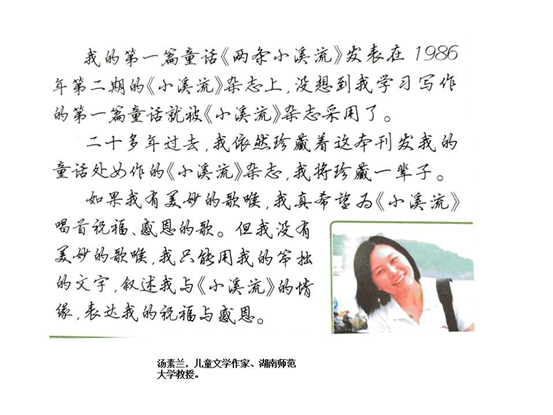 我的第一篇童话《两条小溪流》发表在1986
年第二期的《小溪流》杂志上，没想到我学习写作
的第一篇童话就被《小溪流》杂志采用了。
二十多年过去，我依然珍藏着这本刊发我的
童话处女作的《小溪流》杂志，我将珍藏一辈子。
如果我有美妙的歌喉，我真希望为《小溪流》
唱首祝福、感恩的歌。但我没有
美妙的歌喉，我只能用我的笨拙
的文字，叙述我与《小溪流》的情
缘，表达我的祝福与感恩。
汤素兰，儿童文学作家、湖南师范
大学教授。